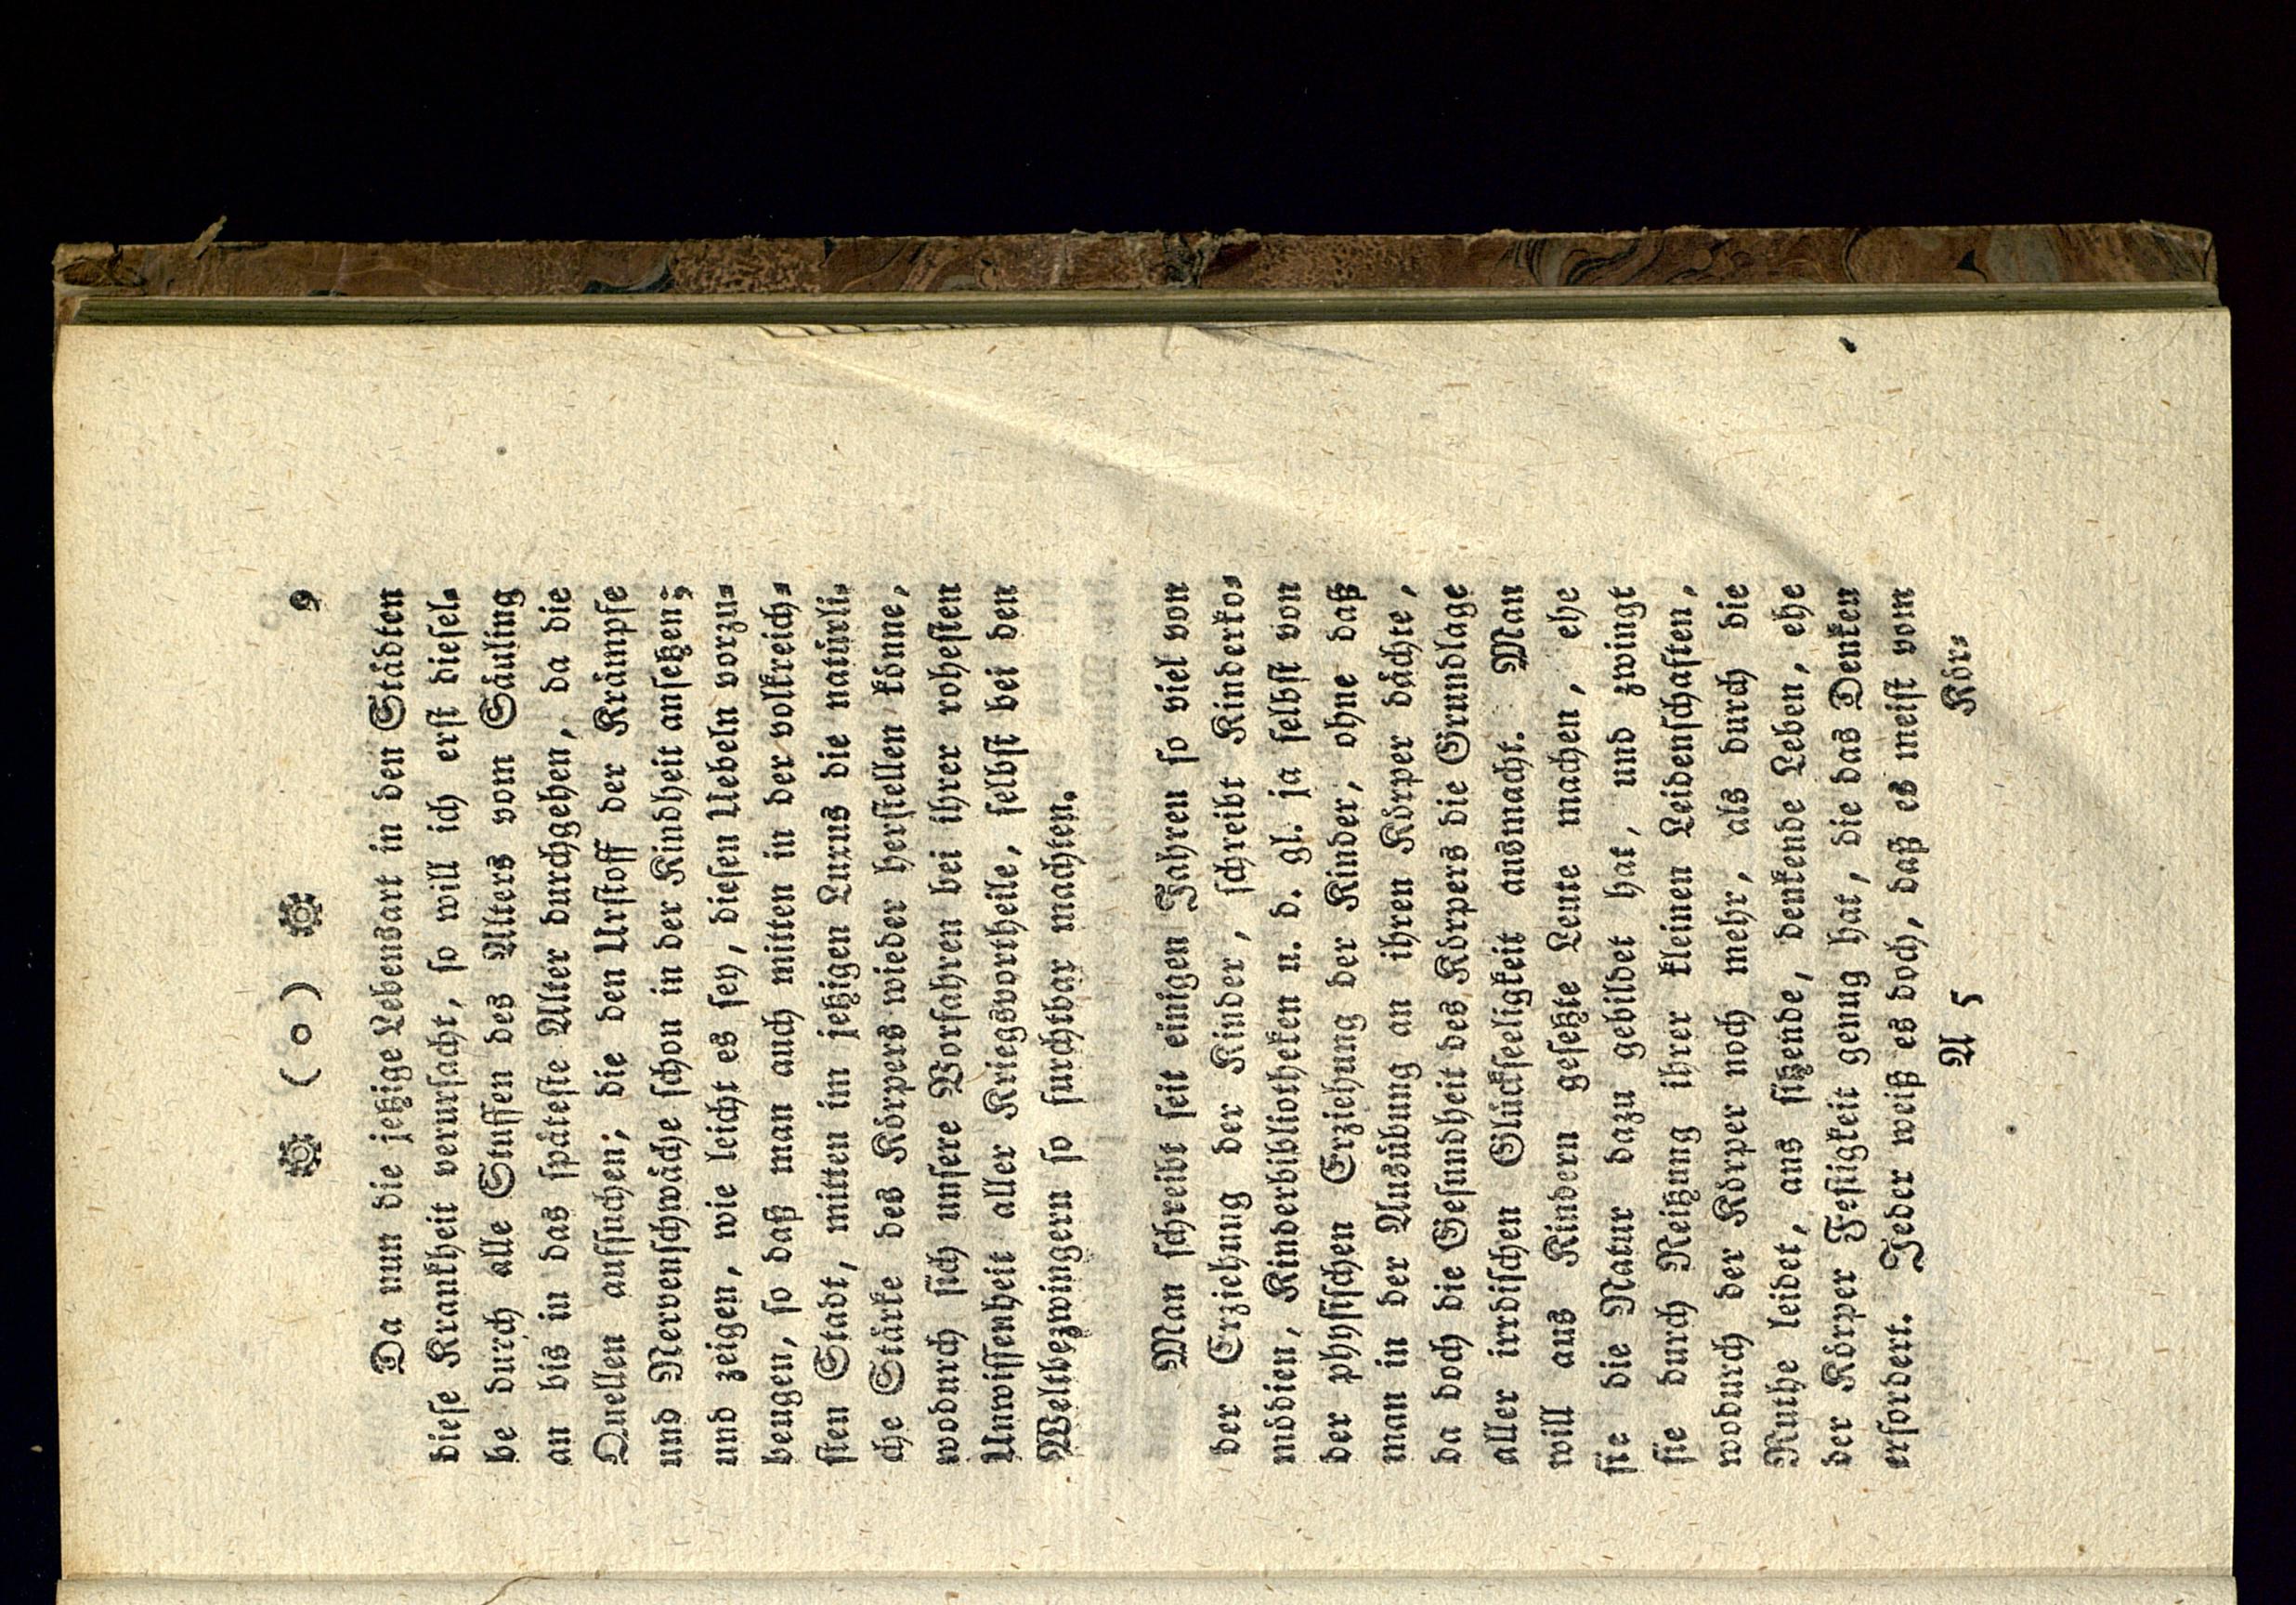 ❁ ( o ) ❁ 9
Da nun die jetzige Lebensart in den Städten
diese Krankheit verursacht, so will ich erst diesel-
be durch alle Stuffen des Alters vom Säuling
an bis in das späteste Alter durchgehen, da die
Quellen aufsuchen; die den Urstoff der Krämpfe
und Nervenschwäche schon in der Kindheit ansetzen;
und zeigen, wie leicht es sey, diesen Uebeln vorzu-
beugen, so daß man auch mitten in der volkreich-
sten Stadt, mitten im jetzigen Luxus die natürli-
che Stärke des Körpers wieder herstellen könne,
wodurch sich unsere Vorfahren bei ihrer rohesten
Unwissenheit aller Kriegsvortheile, selbst bei den
Weltbezwingern so furchtbar machten.
Man schreibt seit einigen Jahren so viel von
der Erziehung der Kinder, schreibt Kinderko-
mödien, Kinderbibliotheken u. d. gl. ja selbst von
der physischen Erziehung der Kinder, ohne daß
man in der Ausübung an ihren Körper dächte,
da doch die Gesundheit des Körpers die Grundlage
aller irrdischen Glückseeligkeit ausmacht. Man
will aus Kindern gesetzte Leute machen, ehe
sie die Natur dazu gebildet hat, und zwingt
sie durch Reitzung ihrer kleinen Leidenschaften,
wodurch der Körper noch mehr, als durch die
Ruthe leidet, ans sitzende, denkende Leben, ehe
der Körper Festigkeit genug hat, die das Denken
erfordert. Jeder weiß es doch, daß es meist vom
A 5 Kör-